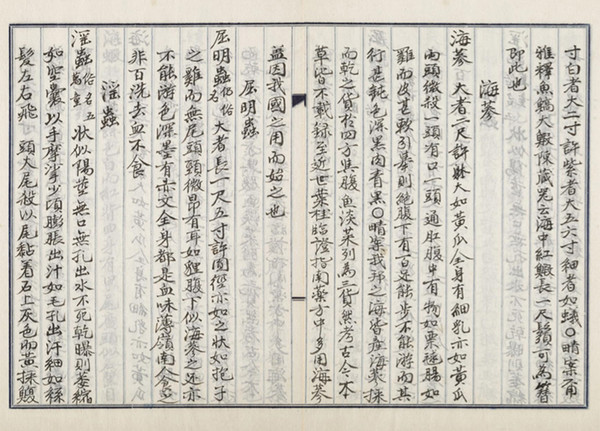 寸白者大二寸許紫者大五六寸細者如蟻〇晴案爾
雅釋魚鰝大鰕陳藏器云海中紅鰕長一尺鬚可為簪
即此也
海蔘
海蔘 大者二尺許體大如黃瓜全身有細乳亦如黃瓜
兩頭微殺一頭有口一頭通肛腹中有物如栗毬腸如
雞而皮甚軟引擧則絶腹下有百足能步不能游而其
行甚鈍色深黑肉青黑〇晴案我邦之海皆産海蔘採
而乾之貨於四方與腹魚淡菜列為三貨然考古今本
草皆不載錄至近世葉桂臨證指南藥方中多用海蔘
盖因我國之用而始之也
屈明蟲
屈明蟲仍俗名 大者長一尺五寸許圓徑亦如之狀如抱子
之雞而無尾頭頸微昂有耳如貍腹下似海蔘之足亦
不能游色深墨有赤文全身都是血味薄嶺南人食之
非百洗去血不食
淫蟲
淫蟲俗名五萬童 狀似陽莖無口無孔出水不死乾曝則萎縮
如空囊以手摩挲少頃膨脹出汁如毛孔出汗細如絲
髮左右飛 頭大尾殺以尾黏着石上灰色而黃採鰒